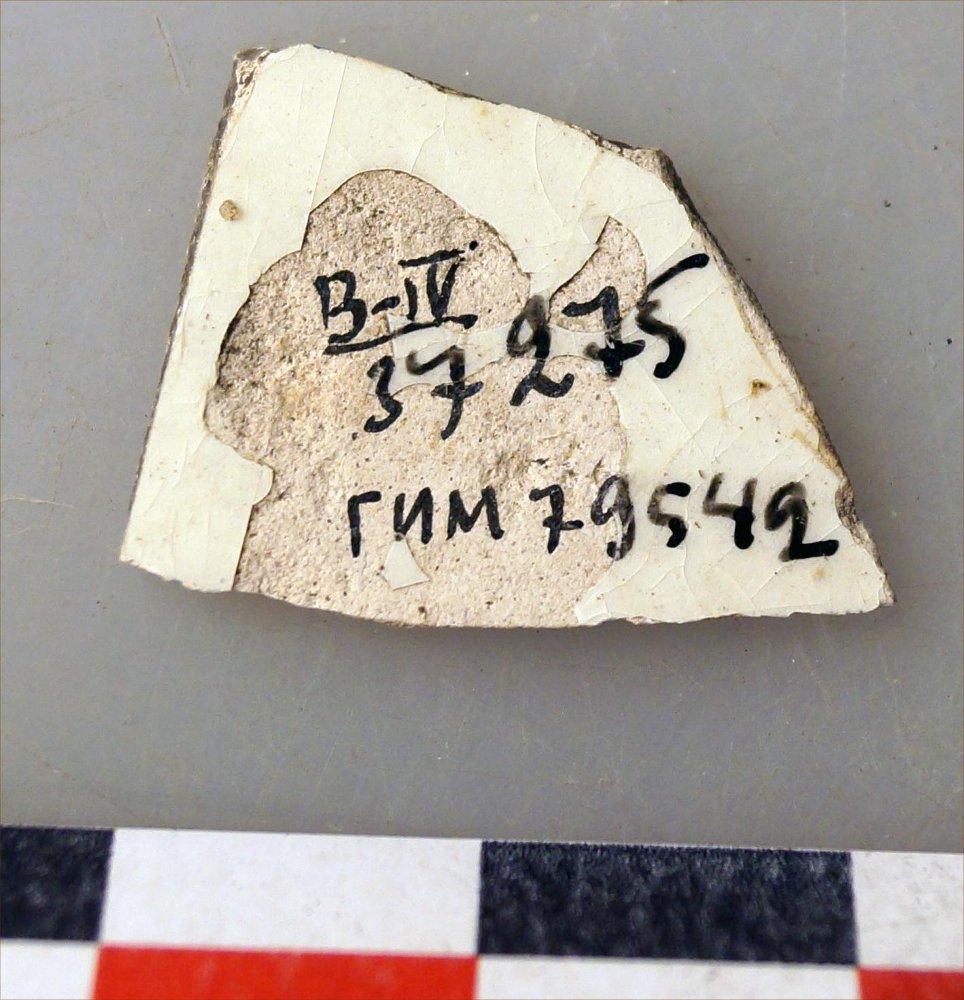 В-IV
37 275
ГИМ 79542